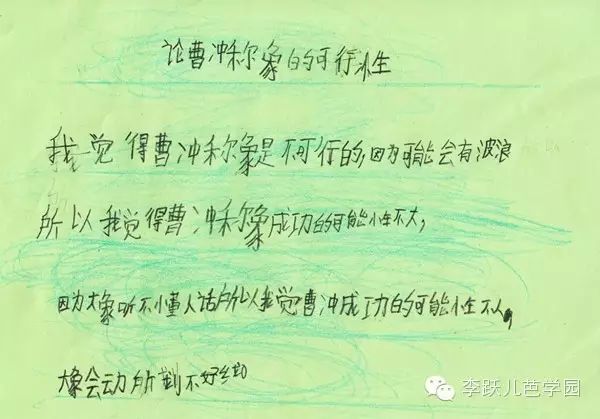 论曹冲称象的可行性
我觉得曹冲称象是不可行的,因为可能会有波浪
所以我觉得曹冲称象成功的可能性不大,
因为大象听不懂人话所以我觉曹冲成功的可能性不
大象会动所 不好
李跃儿芭学园